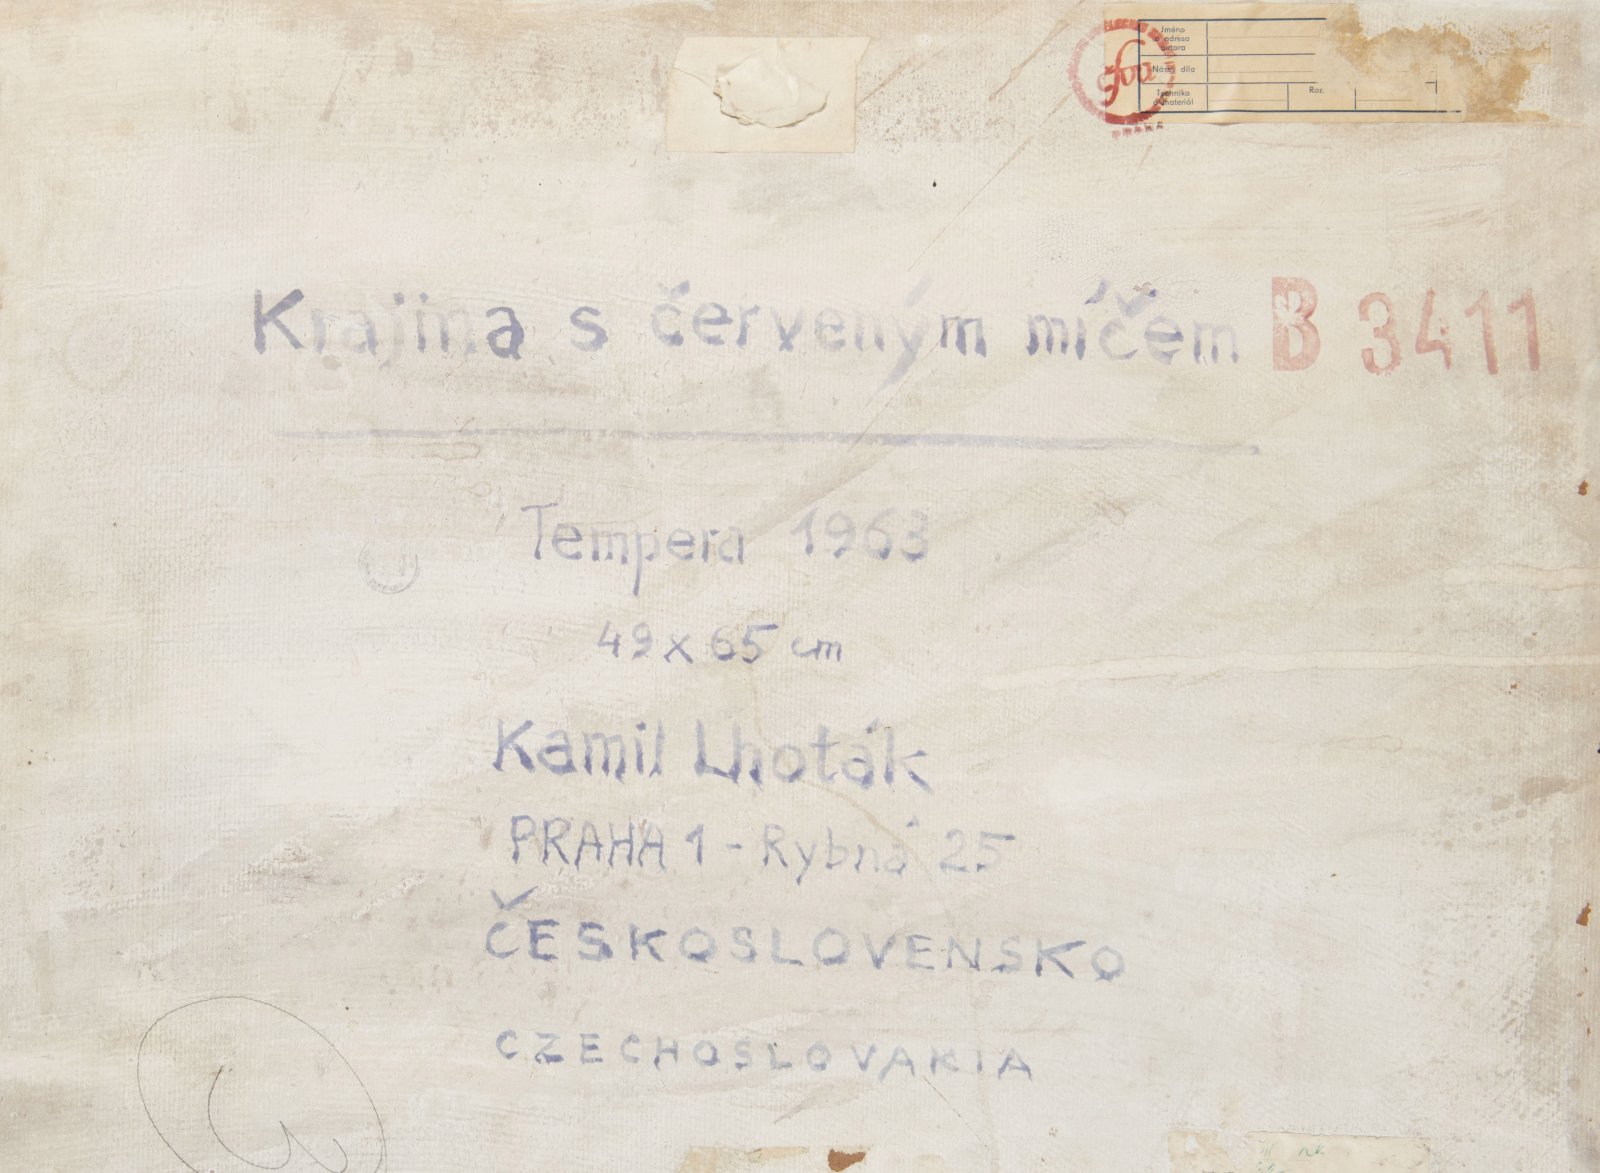 Jméno
a adresa
autora
Název díla
Technika
a materiál
Roz.
PRAHA
Krajina s červeným míčem B 3411
Tempera 1963
49 x 65 cm
Kamil Lhoták
PRAHA 1 - Rybná 25
ČESKOSLOVENSKO
CZECHOSLOVAKIA